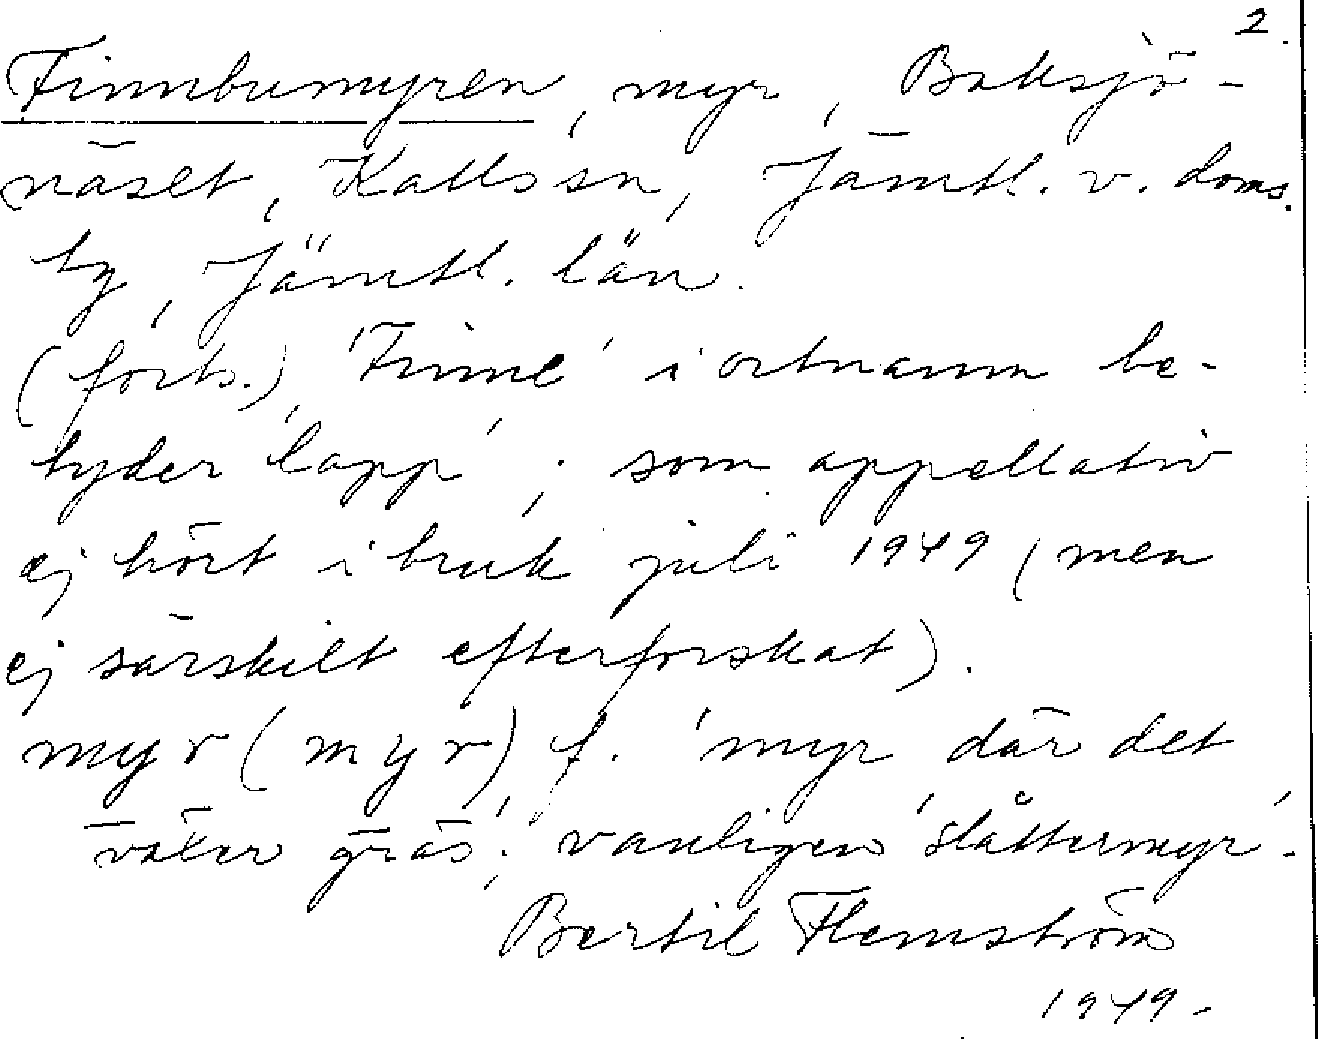 2.
Finnbumyren, myr, Baksjö-
näset, Kalls sn, Jämtl. v. doms.
by, Jämtl. län.
(forts.), 'Finne' i ortnamn be-
tyder 'lapp'; som appellativ
ej hört i bruk juli 1949 (men
ej särskilt efterforskat).
myr (myr) f. 'myr där det
växer gräs'; vanligen 'slåttermyr'.
Bertil Flemström
1949.